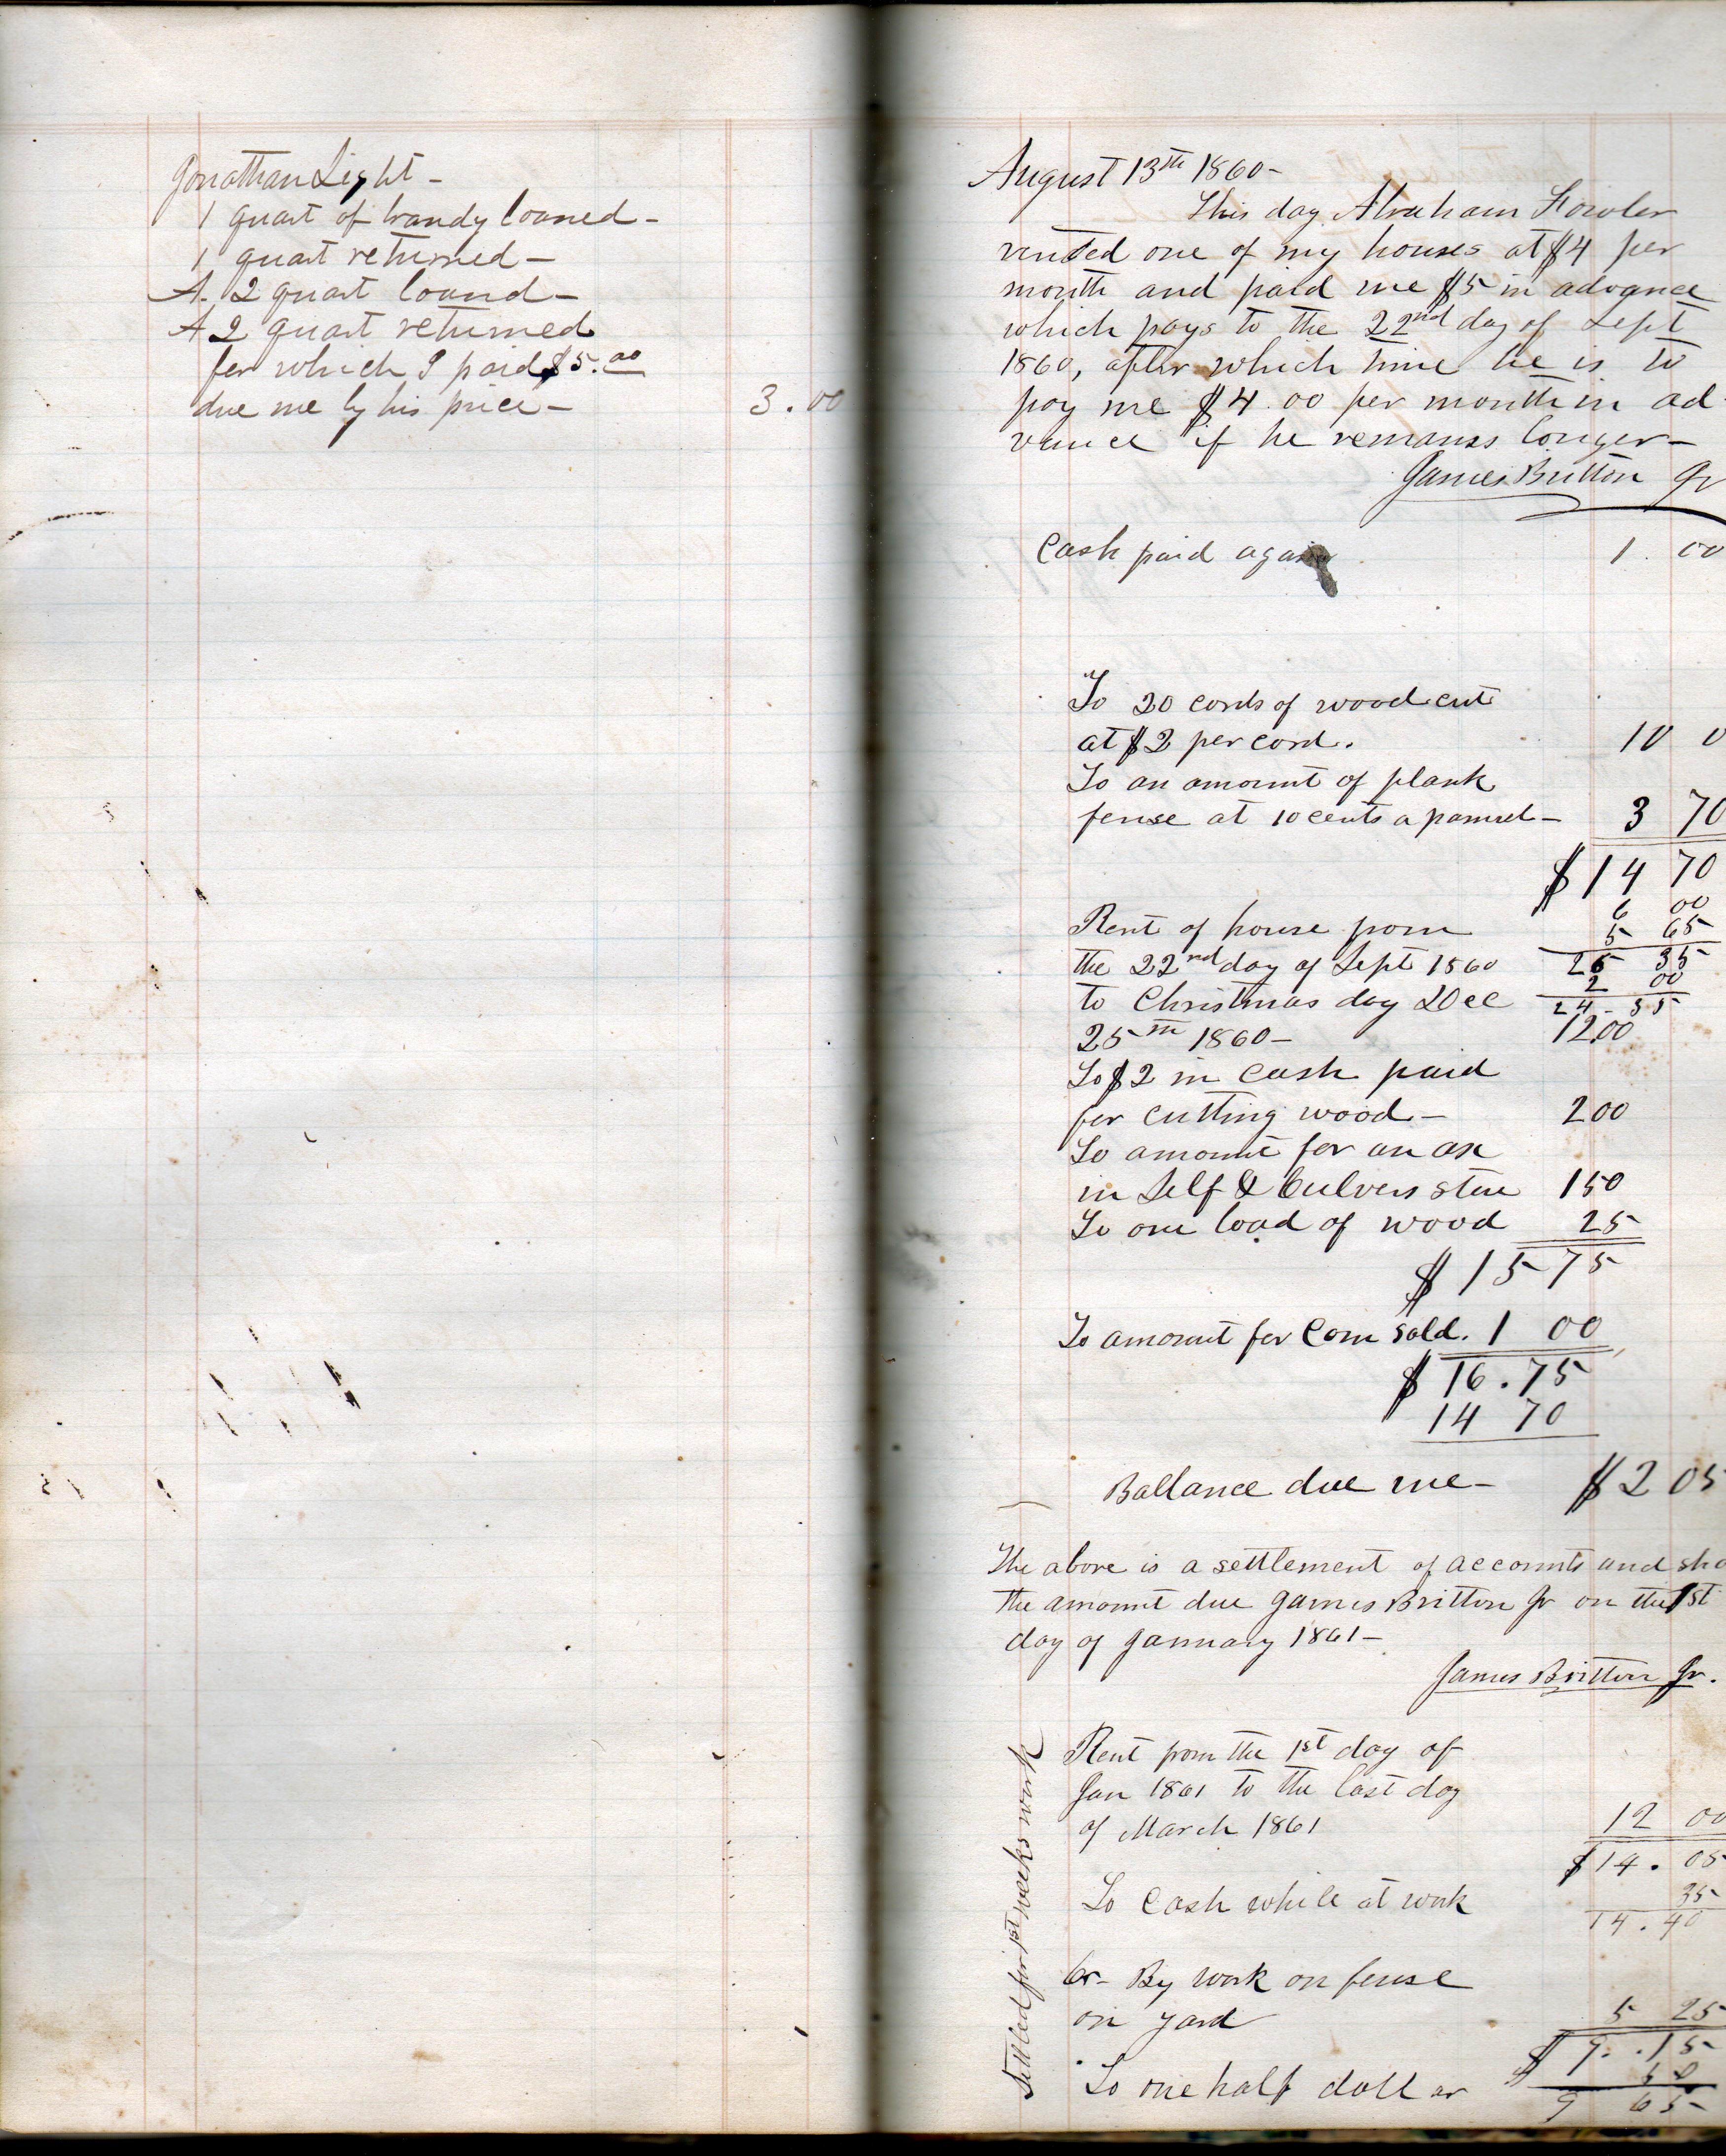 Jonathan Light -
1 quart of brandy loaned -
1 quart returned -
A. 2 quart loand -
A 2 quart returned
for which I paid $5.00
due me by his price - 3.00
August 13th 1860 -
This day Abraham Fowler
rented one of my houses at $4 per
month and paid me $5 in advance
which pays to the 22nd day of Sept
1860, after which time he is to
pay me $4.00 per month in ad-
vance if he remanss longer -
James Britton Jr
Cash paid again 1.00
To 20 cords of wood cut
at $2 per cord. 10 0
To an amount of plank
fense at 10 cents a pannel - 3 70
$14 70
6 00
Rent of house from 5 65
the 22nd day of Sept 1860 26 35
2 00
to Christmas day Dec 24.35
25th 1860 - 12.00
To $2 in cash paid
for cutting wood - 2 00
To amount for an ax
in Self & Culvers store 1 50
To one load of wood 25
$15 75
To amount for Corn sold. 1 00
$16.75
14 70
Ballance due me - $2 05
The above is a settlement of accounts and sho
the amount due James Britton Jr on the 1st
day of January 1861 -
James Britton Jr.
Rent from the 1st day of
Jan 1861 to the last day
of March 1861 12 00
$14.05
35
To Cash while at work 14.40
Cr - By work on fense
on yard 5 25
$9.15
50
To one half dollar 9 65
Settled for 1st weeks work